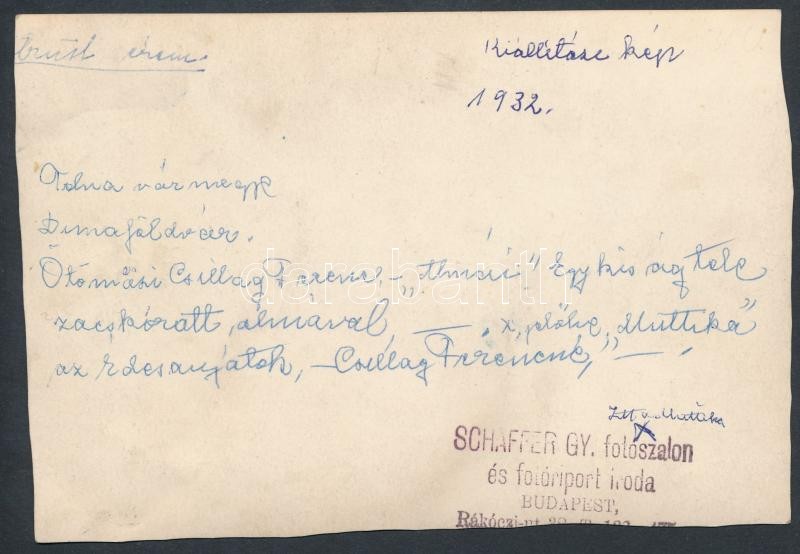 ezüst érem.
Kiállítási kép
1932.
Tolna vármegye
Dunaföldvár.
Csillag Ferenc, – „ " Egy kis ág tele
zacskózott, almával — . x, „Muttika"
az Édesanyátok, – Csillag Ferencné," – ,
Itt a Muttika
X
SCHÄFFER GY. fotószalon
és fotóriport iroda
BUDAPEST,
Rákóczi-ut
darabanth